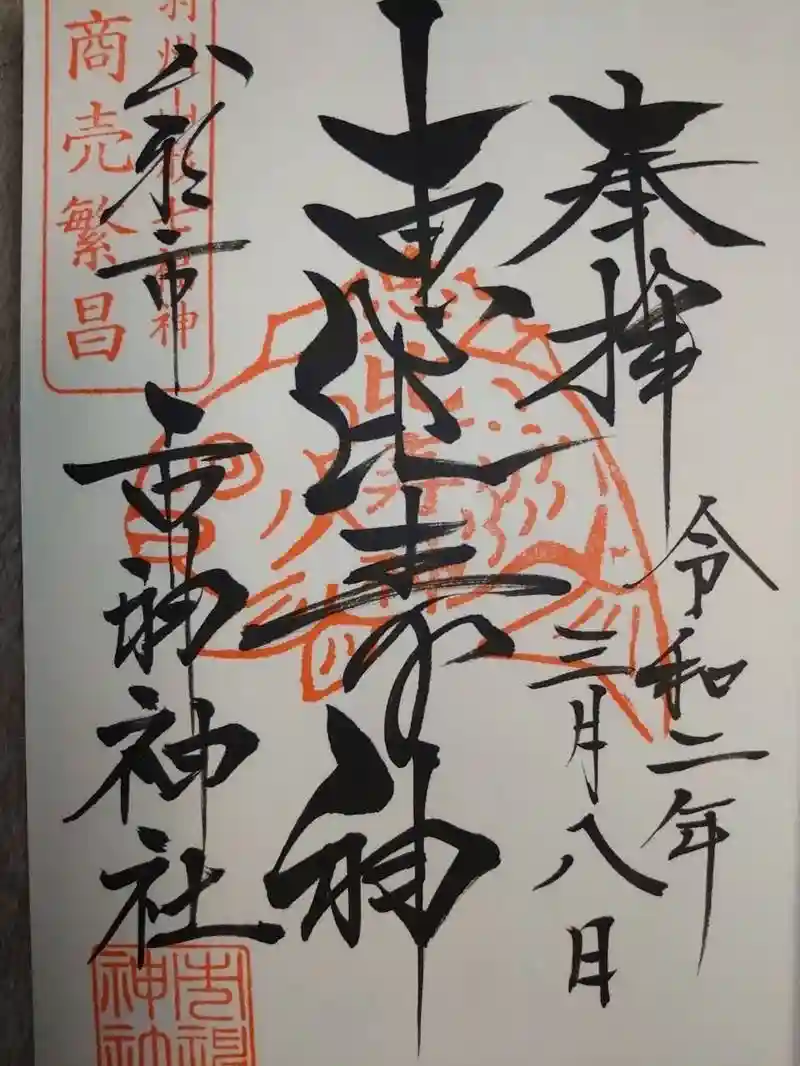 奉拝
令和二年
三月八日
恵比寿神
山形市
市神神社
羽州山形七福神
商売繁昌
市神
神社